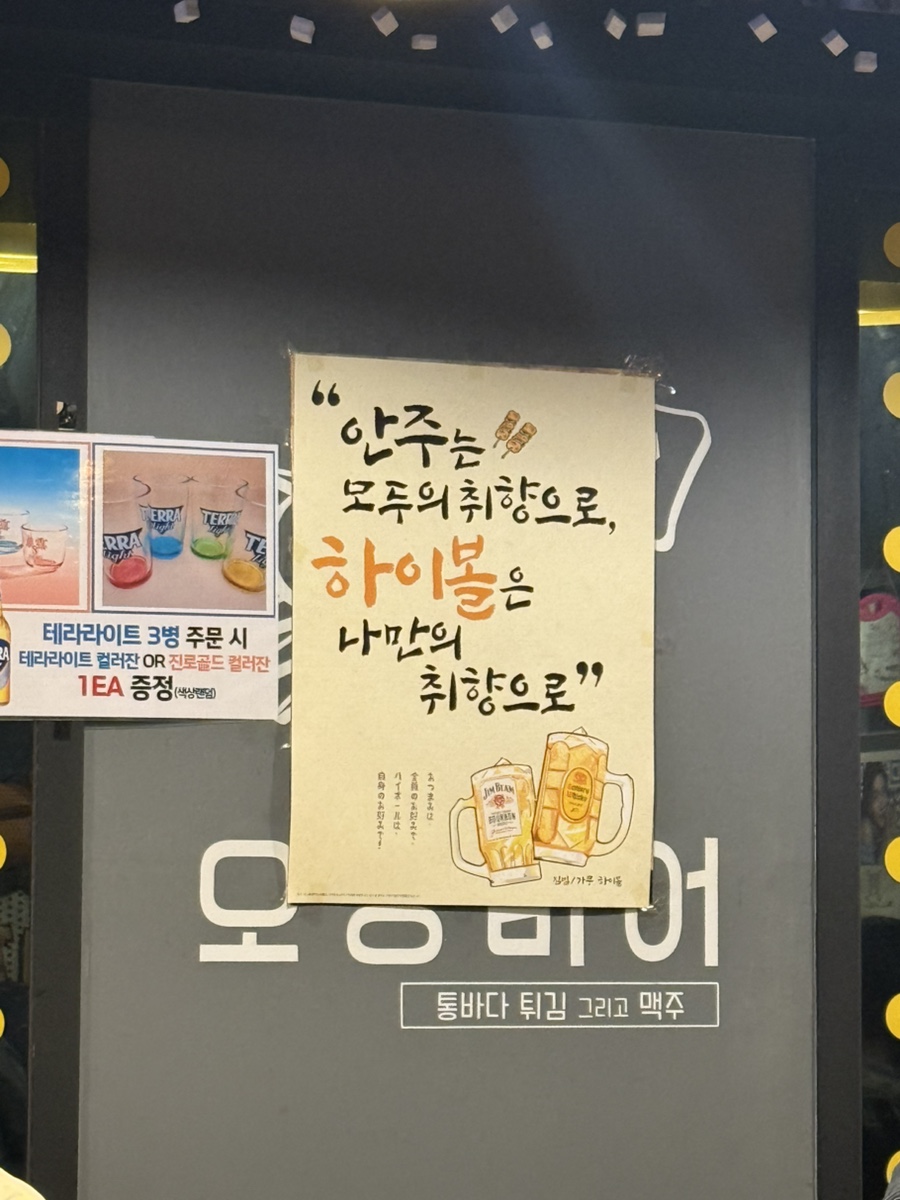 “안주는
모두의 취향으로,
하이볼은
나만의
취향으로”
おつまみは、
全員のお好みで、
ハイボールは、
自身のお好みで!
JIM BEAM
BOURBON
짐빔/가쿠 하이볼
TERRA
Light
TERRA
Light
TERRA
Light
테라라이트 3병 주문 시
테라라이트 컬러잔 OR 진로골드 컬러잔
1EA 증정(색상랜덤)
통바다 튀김 그리고 맥주